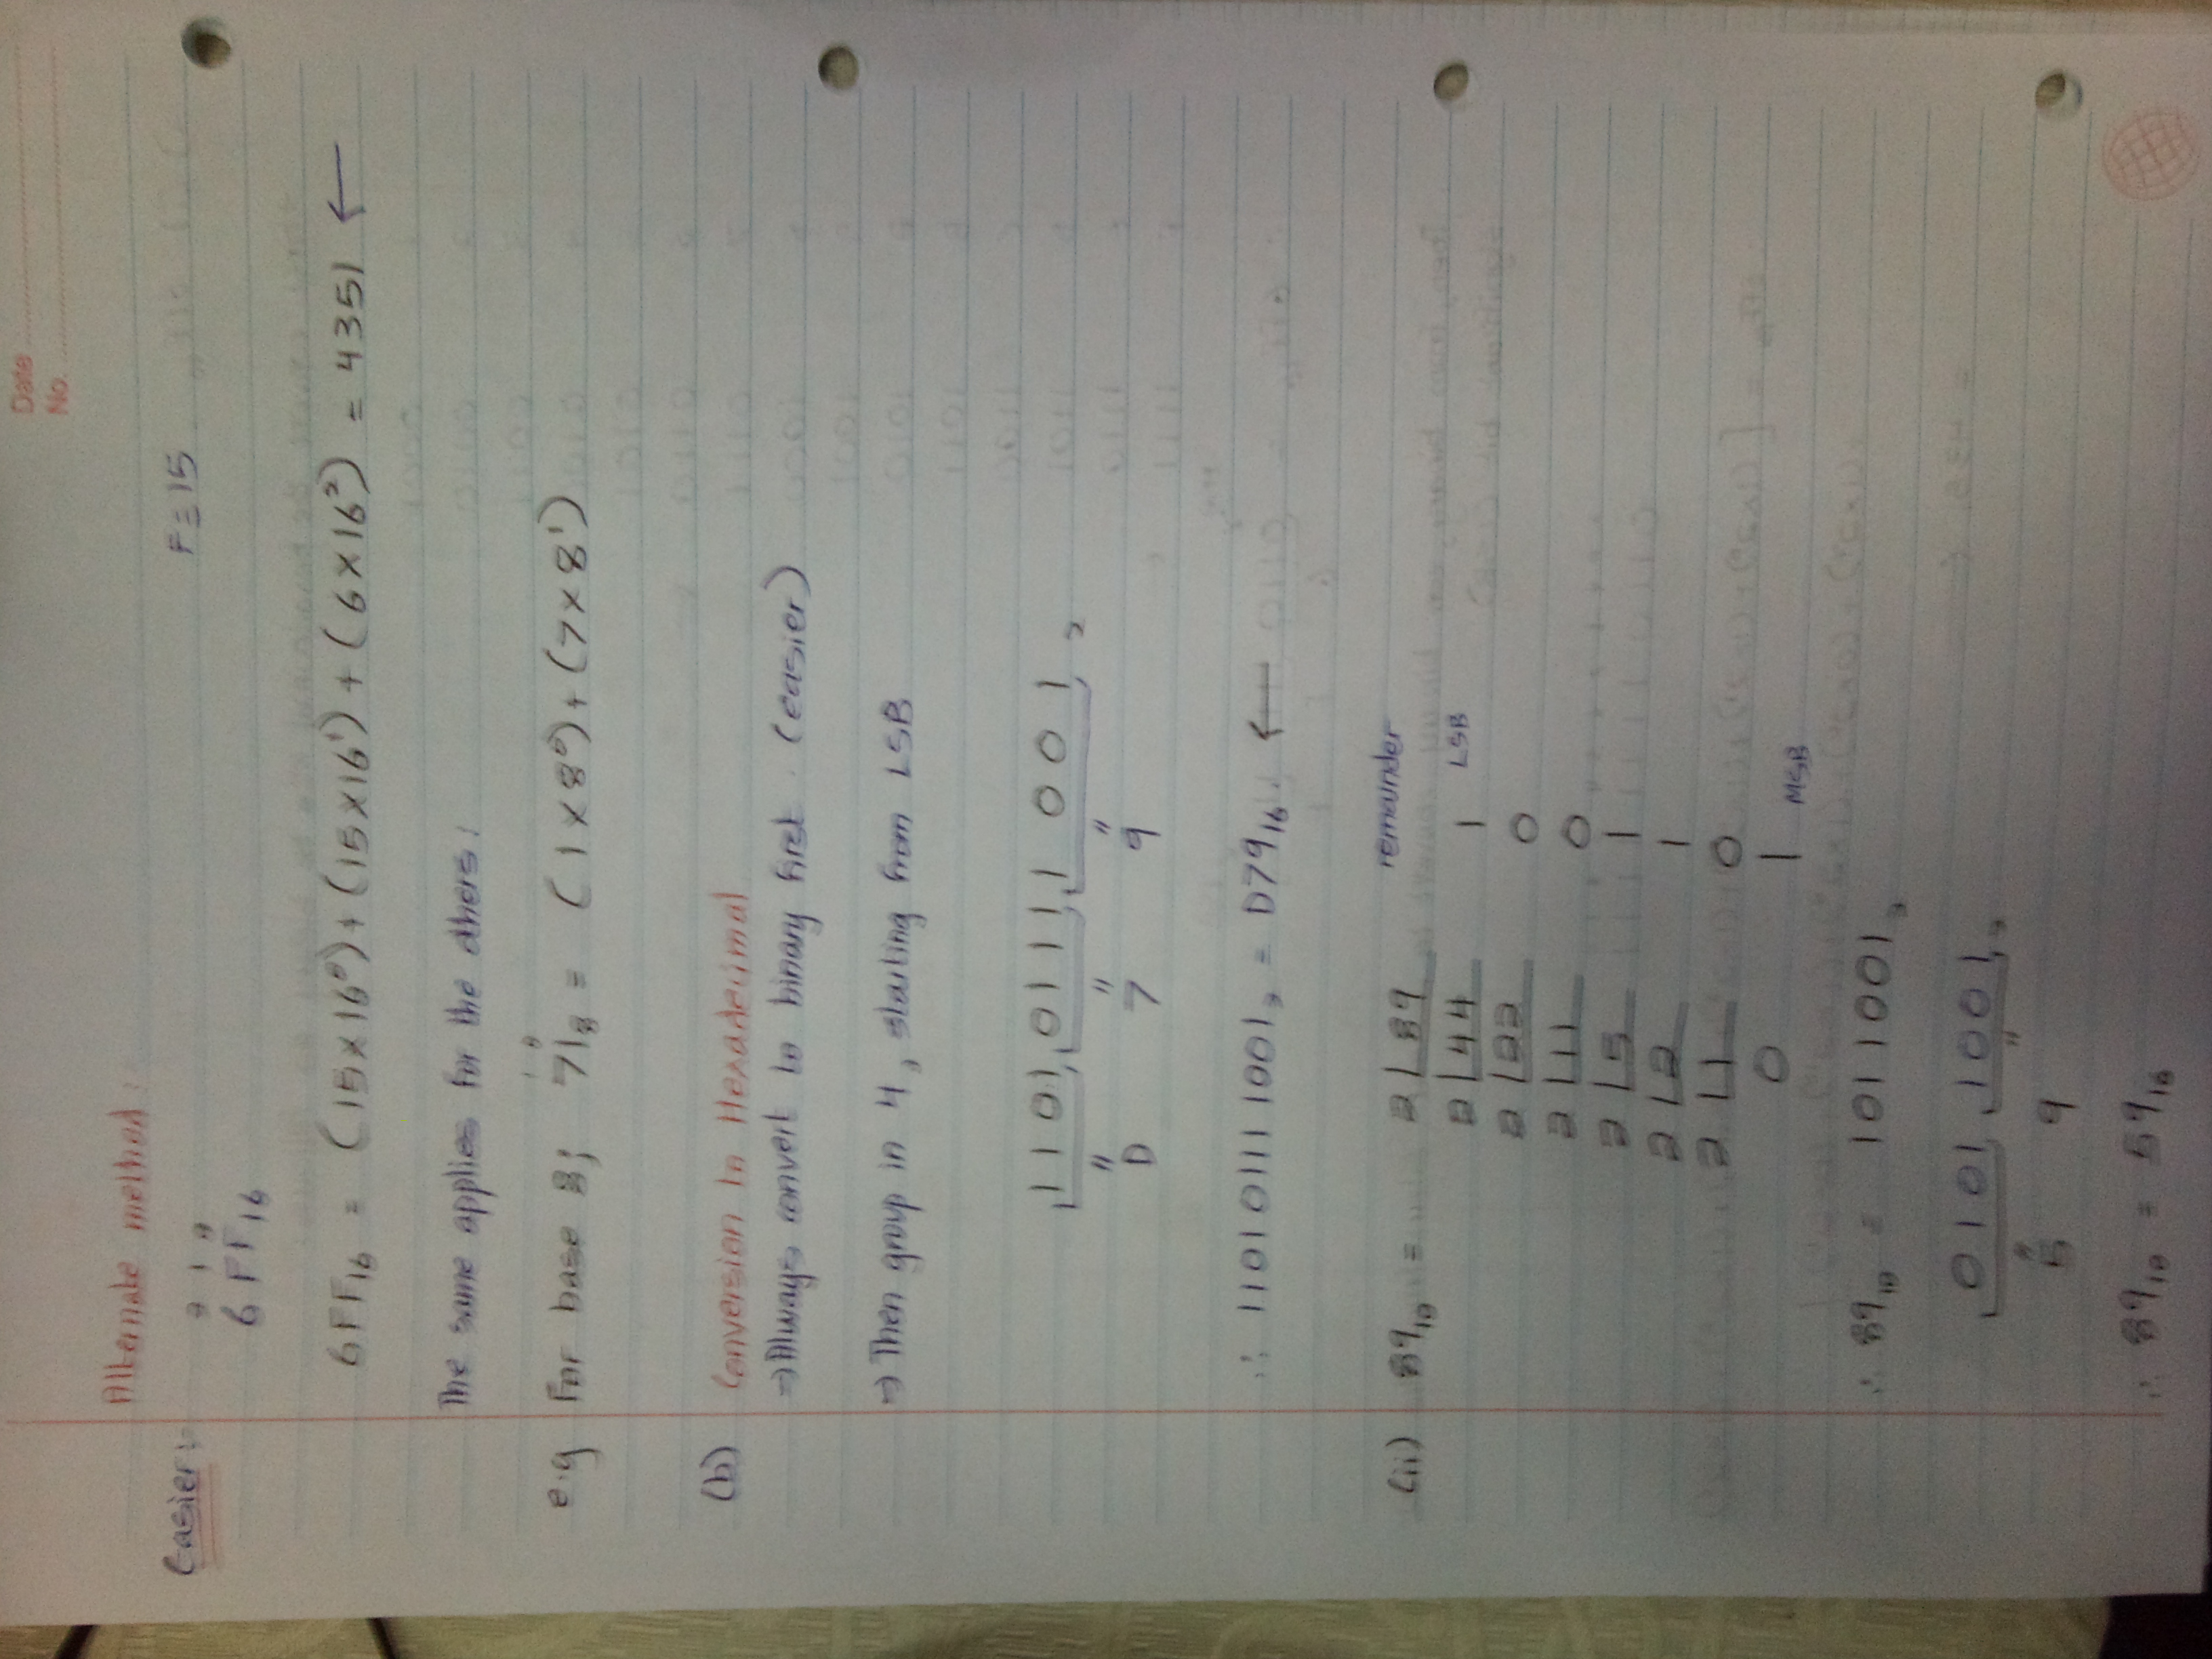 Date
No.
Alternate method:
Easier
2 1 0
6FF₁₆
F = 15
6FF₁₆ = (15×16⁰) + (15×16¹) + (6×16²) = 4351 ←
The same applies for the others:
e.g For base 8; 71₈ = (1×8⁰) + (7×8¹)
(b) Conversion to Hexadecimal
⇒ Always convert to binary first. (easier)
⇒ Then group in 4, starting from LSB
1101 0111 1001₂
" " "
D 7 9
∴ 110101111001₂ = D79₁₆ ←
remainder
(ii) 89₁₀ = 2 89
2 44 1 LSB
2 22 0
2 11 0
2 5 1
2 2 1
2 1 0
0 1 MSB
∴ 89₁₀ = 1011001₂
0101 1001₂
" "
5 9
∴ 89₁₀ = 59₁₆